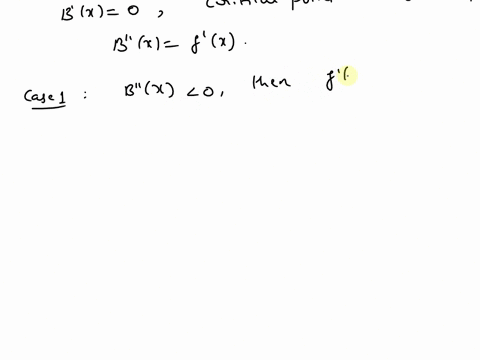 B'(x) = 0 , critical point
B''(x) = f'(x) .
Case 1 : B''(x) < 0, then f'(